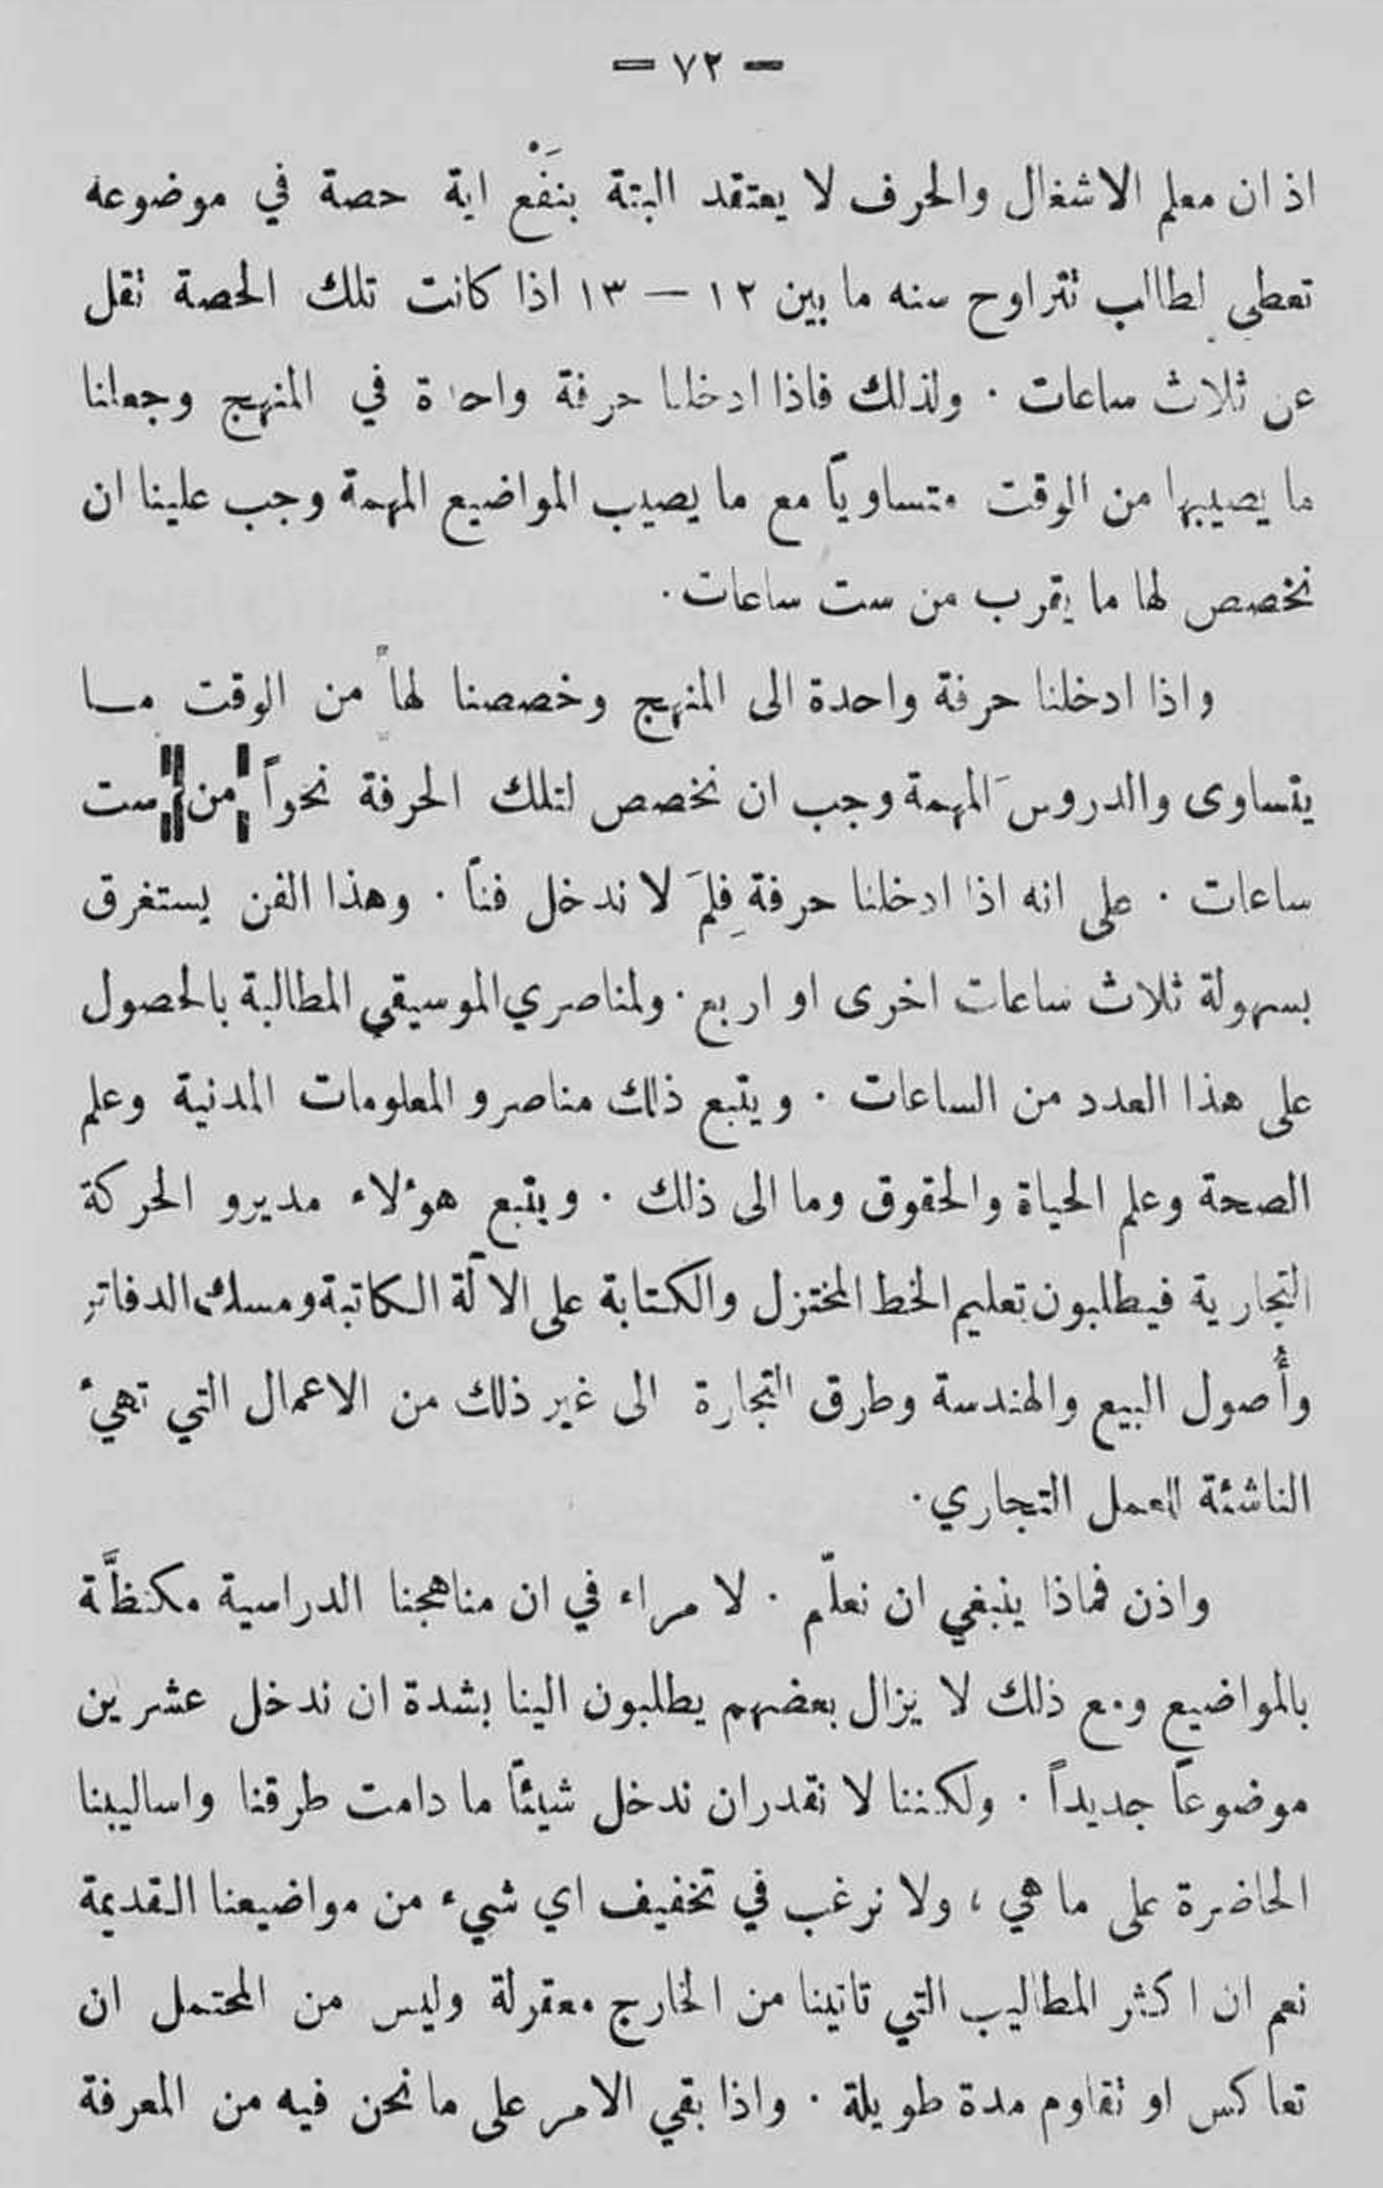 — ٧٢ —
اذ ان معلم الاشغال والحرف لا يعتقد البتة بنَفْع اية حصة في موضوعه
تعطى لطالب تتراوح سنه ما بين ١٢ — ١٣ اذا كانت تلك الحصة تقل
عن ثلاث ساعات · ولذلك فاذا ادخلنا حرفة واحدة في المنهج وجعلنا
ما يصيبها من الوقت متساوياً مع ما يصيب المواضيع المهمة وجب علينا ان
نخصص لها ما يقرب من ست ساعات ·
واذا ادخلنا حرفة واحدة الى المنهج وخصصنا لها من الوقت مـا
يتساوى والدروسَ المهمة وجب ان نخصص لتلك الحرفة نحواً من ست
ساعات · على انه اذا ادخلنا حرفة فِلمَ لا ندخل فناً · وهذا الفن يستغرق
بسهولة ثلاث ساعات اخرى او اربع · ولمناصري الموسيقى المطالبة بالحصول
على هذا العدد من الساعات · ويتبع ذلك مناصرو المعلومات المدنية وعلم
الصحة وعلم الحياة والحقوق وما الى ذلك · ويتبع هؤلاء مديرو الحركة
التجارية فيطلبون تعليم الخط المختزل والكتابة على الآلة الكاتبة ومسك الدفاتر
وأُصول البيع والهندسة وطرق التجارة الى غير ذلك من الاعمال التي تهيئ
الناشئة للعمل التجاري ·
واذن فماذا ينبغي ان نعلّم · لا مراء في ان مناهجنا الدراسية مكتظَّة
بالمواضيع ومع ذلك لا يزال بعضهم يطلبون الينا بشدة ان ندخل عشرين
موضوعاً جديداً · ولكننا لا نقدر ان ندخل شيئاً ما دامت طرقنا واساليبنا
الحاضرة على ما هي ، ولا نرغب في تخفيف اي شيء من مواضيعنا القديمة
نعم ان اكثر المطاليب التي تاتينا من الخارج معقولة وليس من المحتمل ان
تعاكس او تقاوم مدة طويلة · واذا بقي الامر على ما نحن فيه من المعرفة